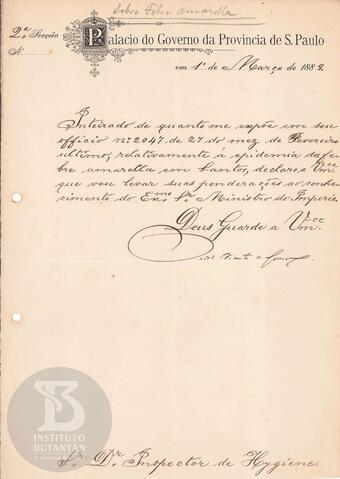 Sobre Febre amarella
2.ª Secção
N.
Palacio do Governo da Provincia de S. Paulo
em 1º de Março de 1889.
Inteirado de quanto me expõe em seu
officio nº 2047 de 27 do mez de Fevereiro
ultimo, relativamente á epidemia da fe-
bre amarella em Santos, declaro a Vm.ce
que vou levar suas ponderações ao conhe-
cimento do Exmo. Sr. Ministro do Imperio.
Deus Guarde a Vm.ce
INSTITUTO
BUTANTAN
Sr. Dr. Inspector de Hygiene.